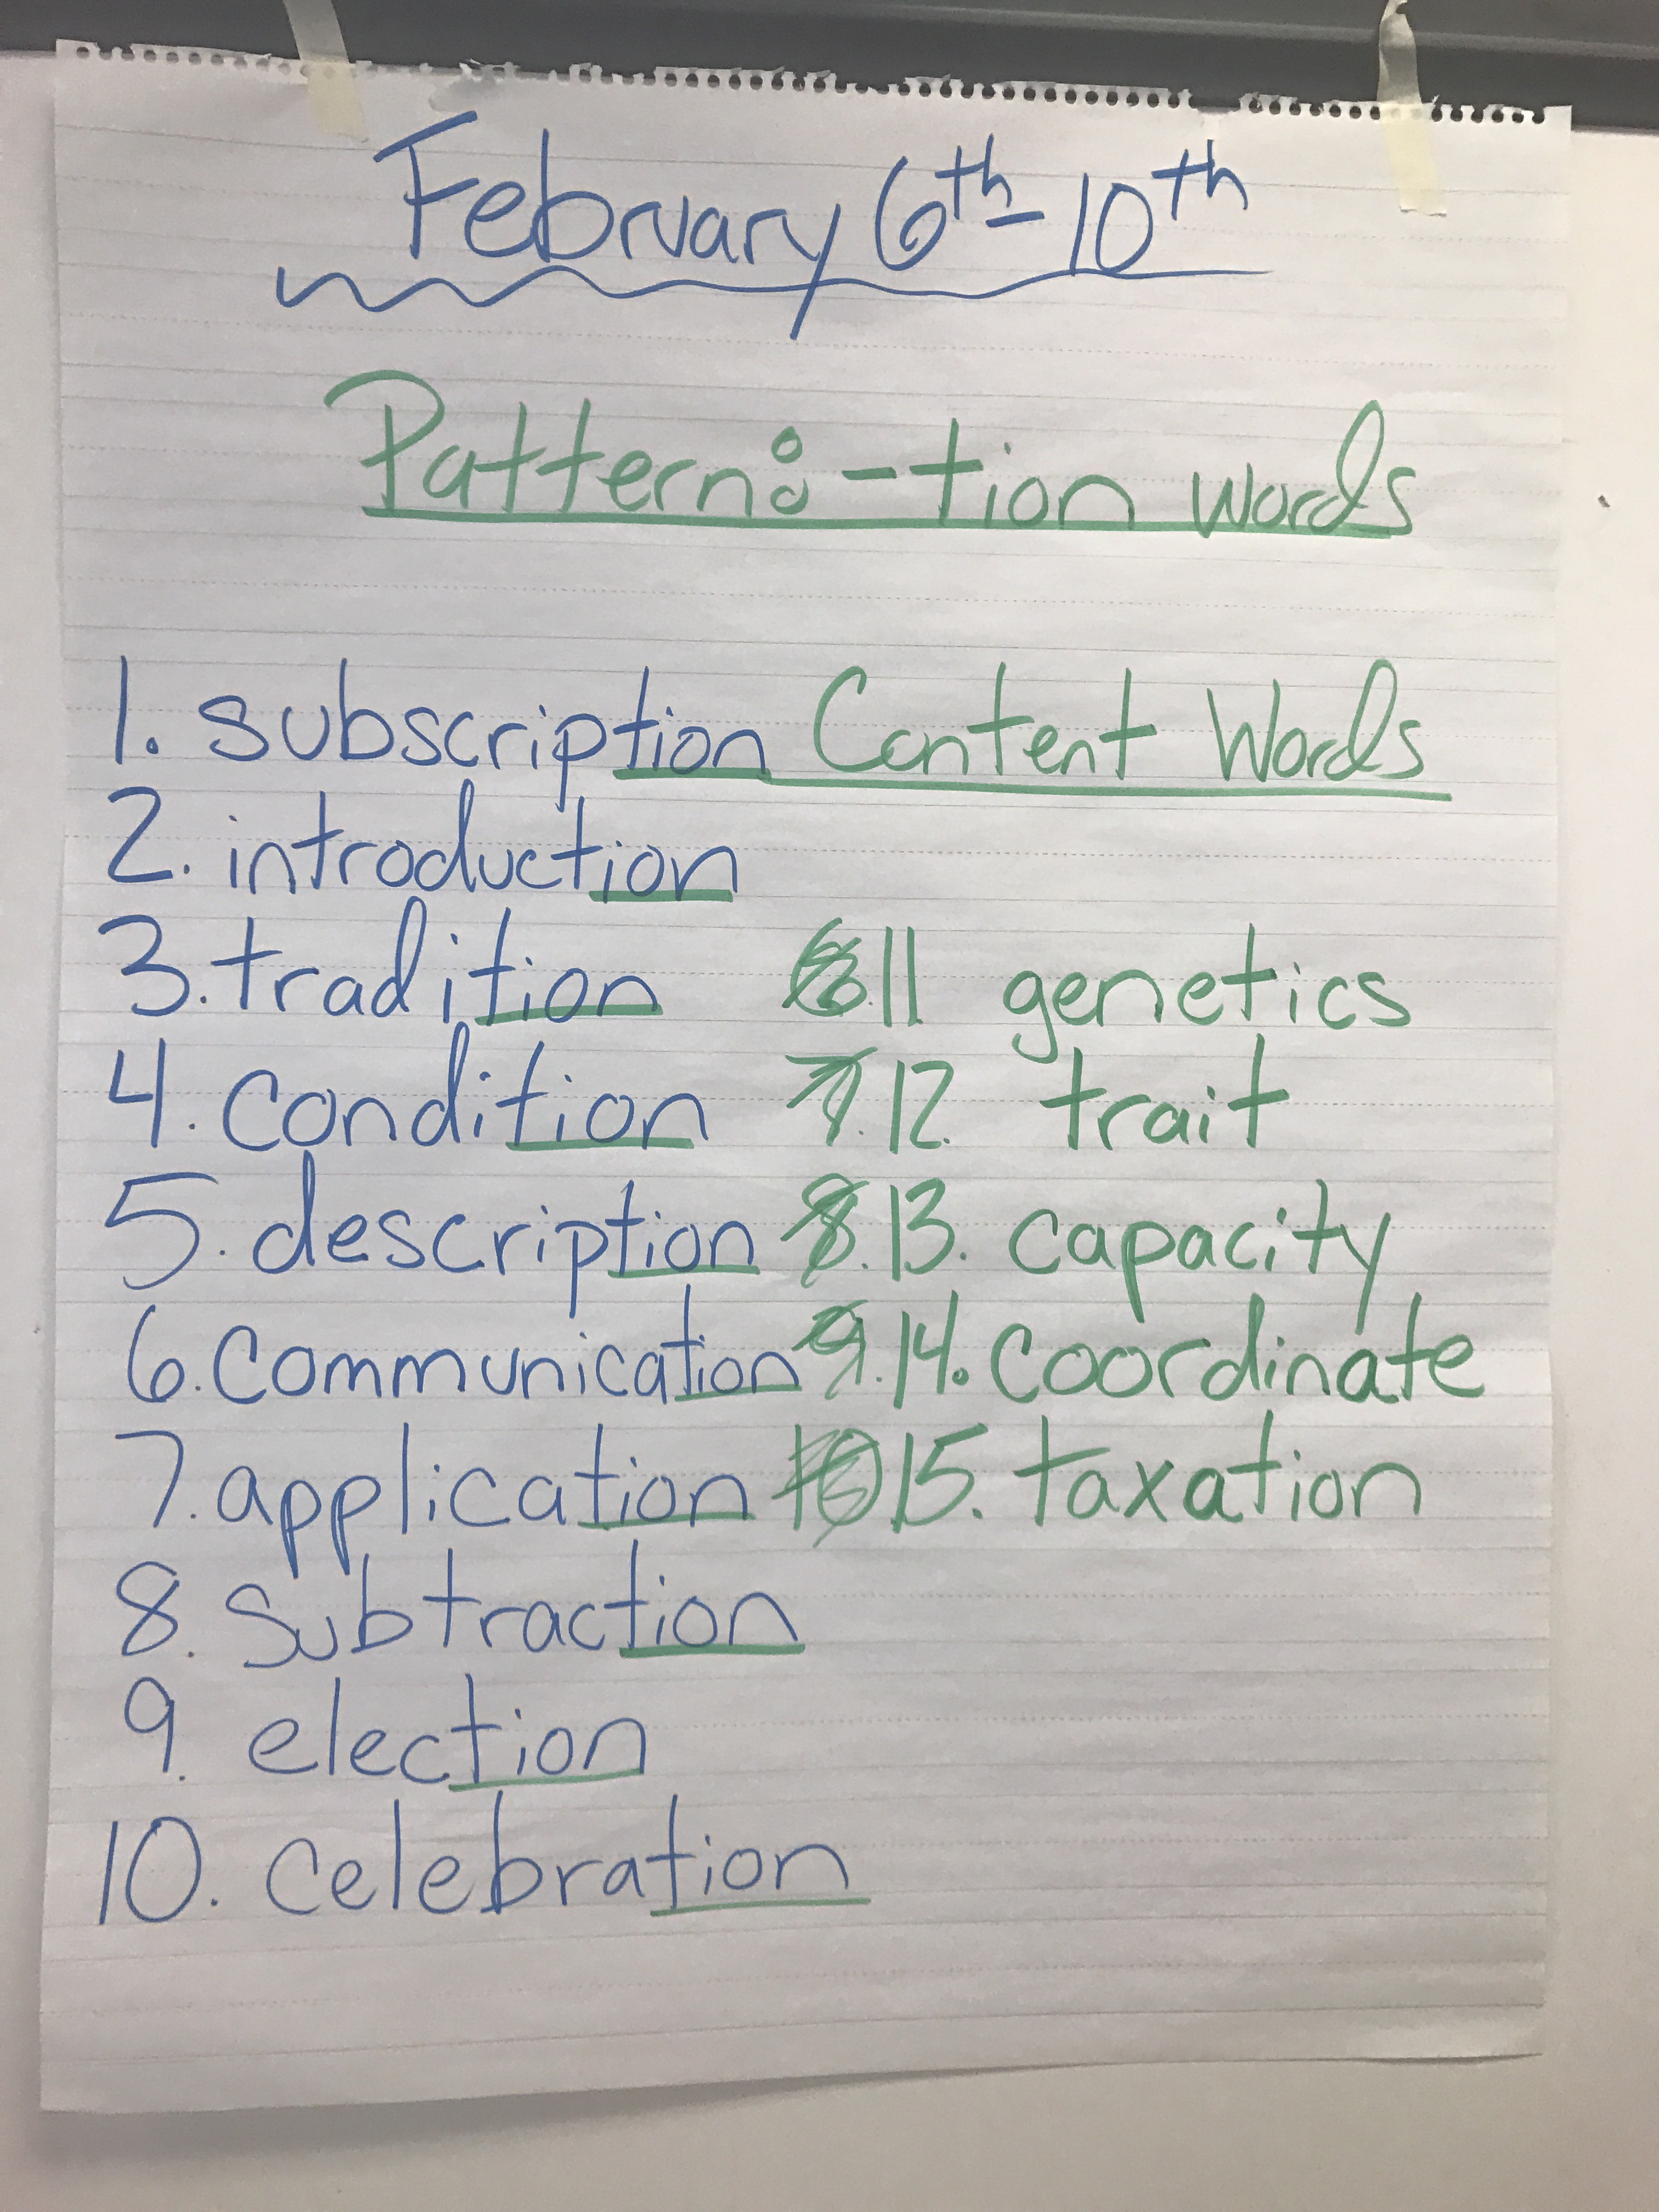 February 6th - 10th
Pattern: -tion words
1. subscription
2. introduction
3. tradition
4. condition
5. description
6. communication
7. application
8. subtraction
9. election
10. celebration
Content Words
6. 11 genetics
7. 12. trait
8. 13. capacity
9. 14. coordinate
10 15. taxation